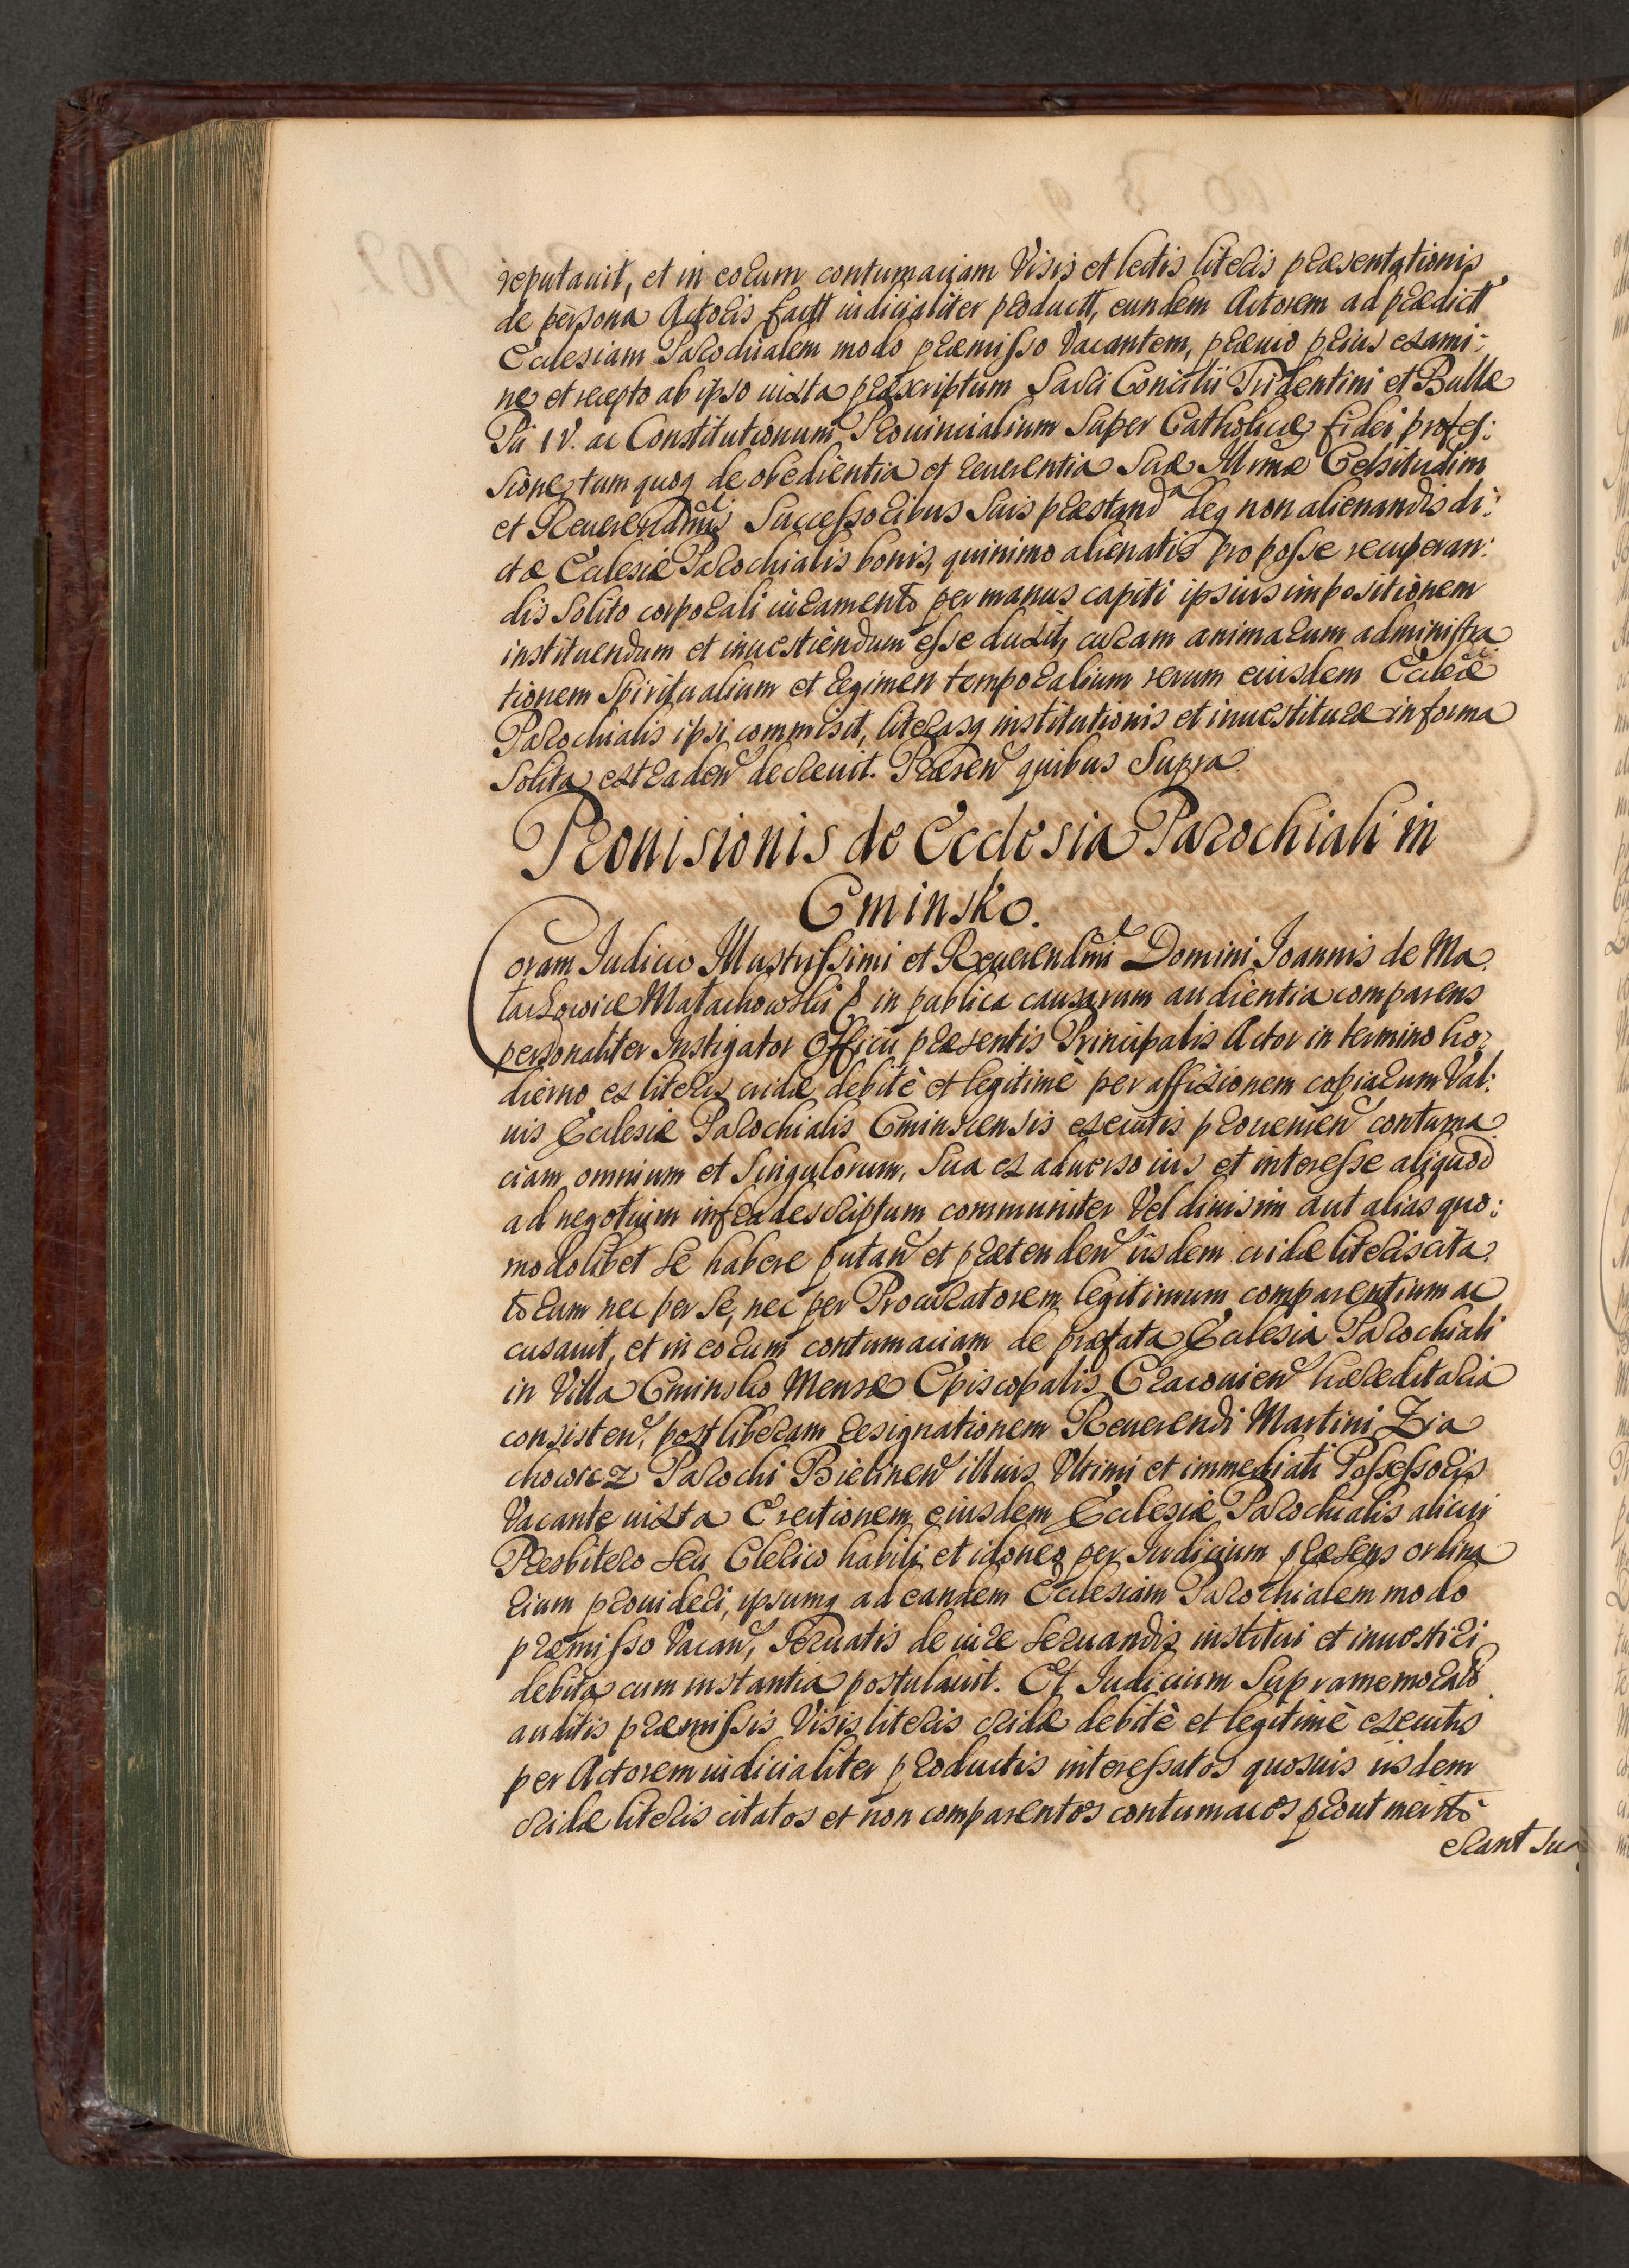 reputauit, et in eorum contumaciam Visis et lectis literis præsentationis
de persona Actoris factt iudicialiter productt, eundem Actorem ad prædictt
Ecclesiam Parochialem modo præmisso Vacantem, præuio prius exami:
ne et recepto ab ipso iuxta præscriptum Sacri Concilii Tridentini et Bullæ
Pii IV. ac Constitutionum Prouincialium Super Catholicæ fidei profes:
sione, tum quoq de obedientia et reuerentia Suæ Illrmæ Celsitudini
et Reuerendmis Successoribus Suis præstand deq non alienandis di:
ctæ Ecclesiæ Parochialis bonis, quinimo alienatis pro posse recuperan:
dis Solito corporali iuramento per manus capiti ipsius impositionem
instituendum et inuestiendum esse duxit, curam animarum administra
tionem Spiritualium et regimen temporalium rerum eiusdem Eccleæ
Parochialis ipsi commisit, literasq institutionis et inuestituræ in forma
Solita extraden decreuit. Præsen quibus Supra.
Prouisionis de Ecclesia Parochiali in
Cminsko.
Coram Iudicio Illustrissimi et Reuerendmi Domini Ioannis de Ma
łachowice Małachowski in publica causarum audientia comparens
personaliter Instigator Officii præsentis Principalis Actor in termino ho:
dierno ex literis cridæ debitè et legitimè per affixionem copiarum Val:
uis Ecclesiæ Parochialis Cminscensis executis prouenien contuma
ciam omnium et Singulorum, Sua ex aduerso ius et interesse aliquod
ad negotium infradescriptum communiter Vel diuisim aut alias quo:
modolibet Se habere putan et prætenden iisdem cridæ literis cita
torum nec per Se, nec per Procuratorem legitimum comparentium ac
cusauit, et in eorum contumaciam de præfata Ecclesia Parochiali
in Villa Cminsko Mensæ Episcopalis Cracouien hæreditaria
consisten, post liberam resignationem Reuerendi Martini Zia
chowicz Parochi Bielinen illius Vltimi et immediati Possessoris
Vacante iuxta Erectionem eiusdem Ecclesiæ Parochialis alicui
Præsbitero Seu Clerico habili et idoneo per Iudicium præsens ordina
rium prouideri, ipsumq ad eandem Ecclesiam Parochialem modo
præmisso Vacan, Seruatis de iure Seruandis institui et inuestiri
debita cum instantia postulauit. Et Iudicium Supramemorat
auditis præmissis Visis literis cridæ debitè et legitimè executis
per Actorem iudicialiter productis interessatos quosuis iisdem
cridæ literis citatos et non comparentes contumaces prout meritò
erant Iu